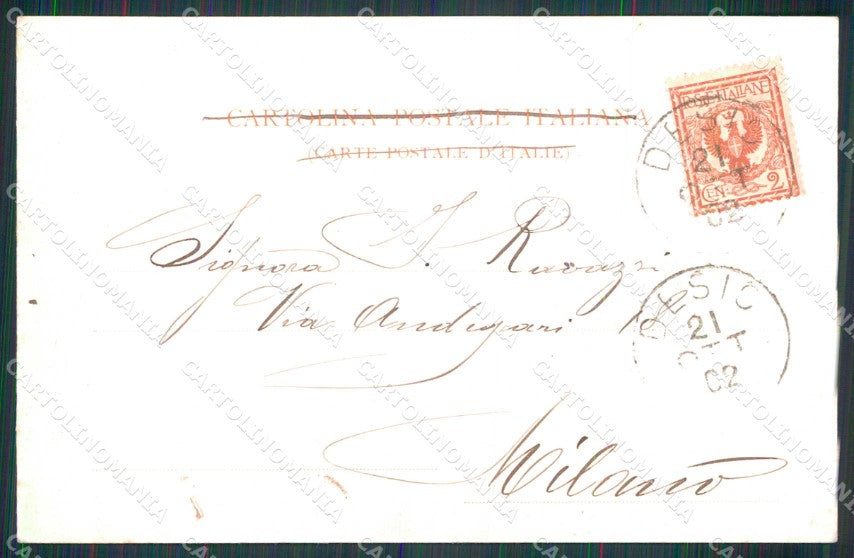 CARTOLINA POSTALE ITALIANA
(CARTE POSTALE D'ITALIE)
POSTE ITALIANE
CEN. 2
DESIO
21
OTT
02
Signora I. Ravazzi
Via Andegari 18
DESIO
21
OTT
02
Milano
CARTOLINOMANIA